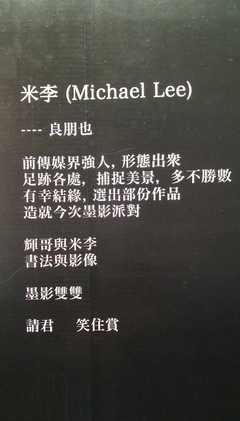 米李 (Michael Lee)
---- 良朋也
前傳媒界強人, 形態出衆
足跡各處, 捕捉美景, 多不勝數
有幸結緣, 選出部份作品
造就今次墨影派對
輝哥與米李
書法與影像
墨影雙雙
請君 笑住賞